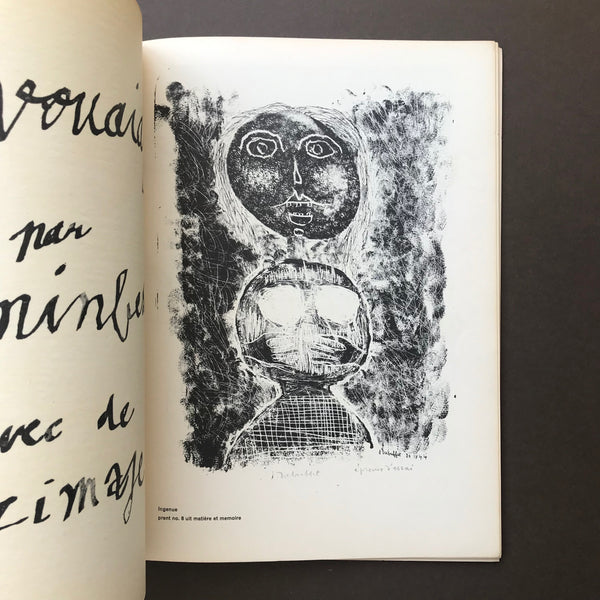 vouaia
par
ninbe
avec de
zimaje
J. Dubuffet épreuve d'essai
Ingenue
prent no. 8 uit matière et memoire